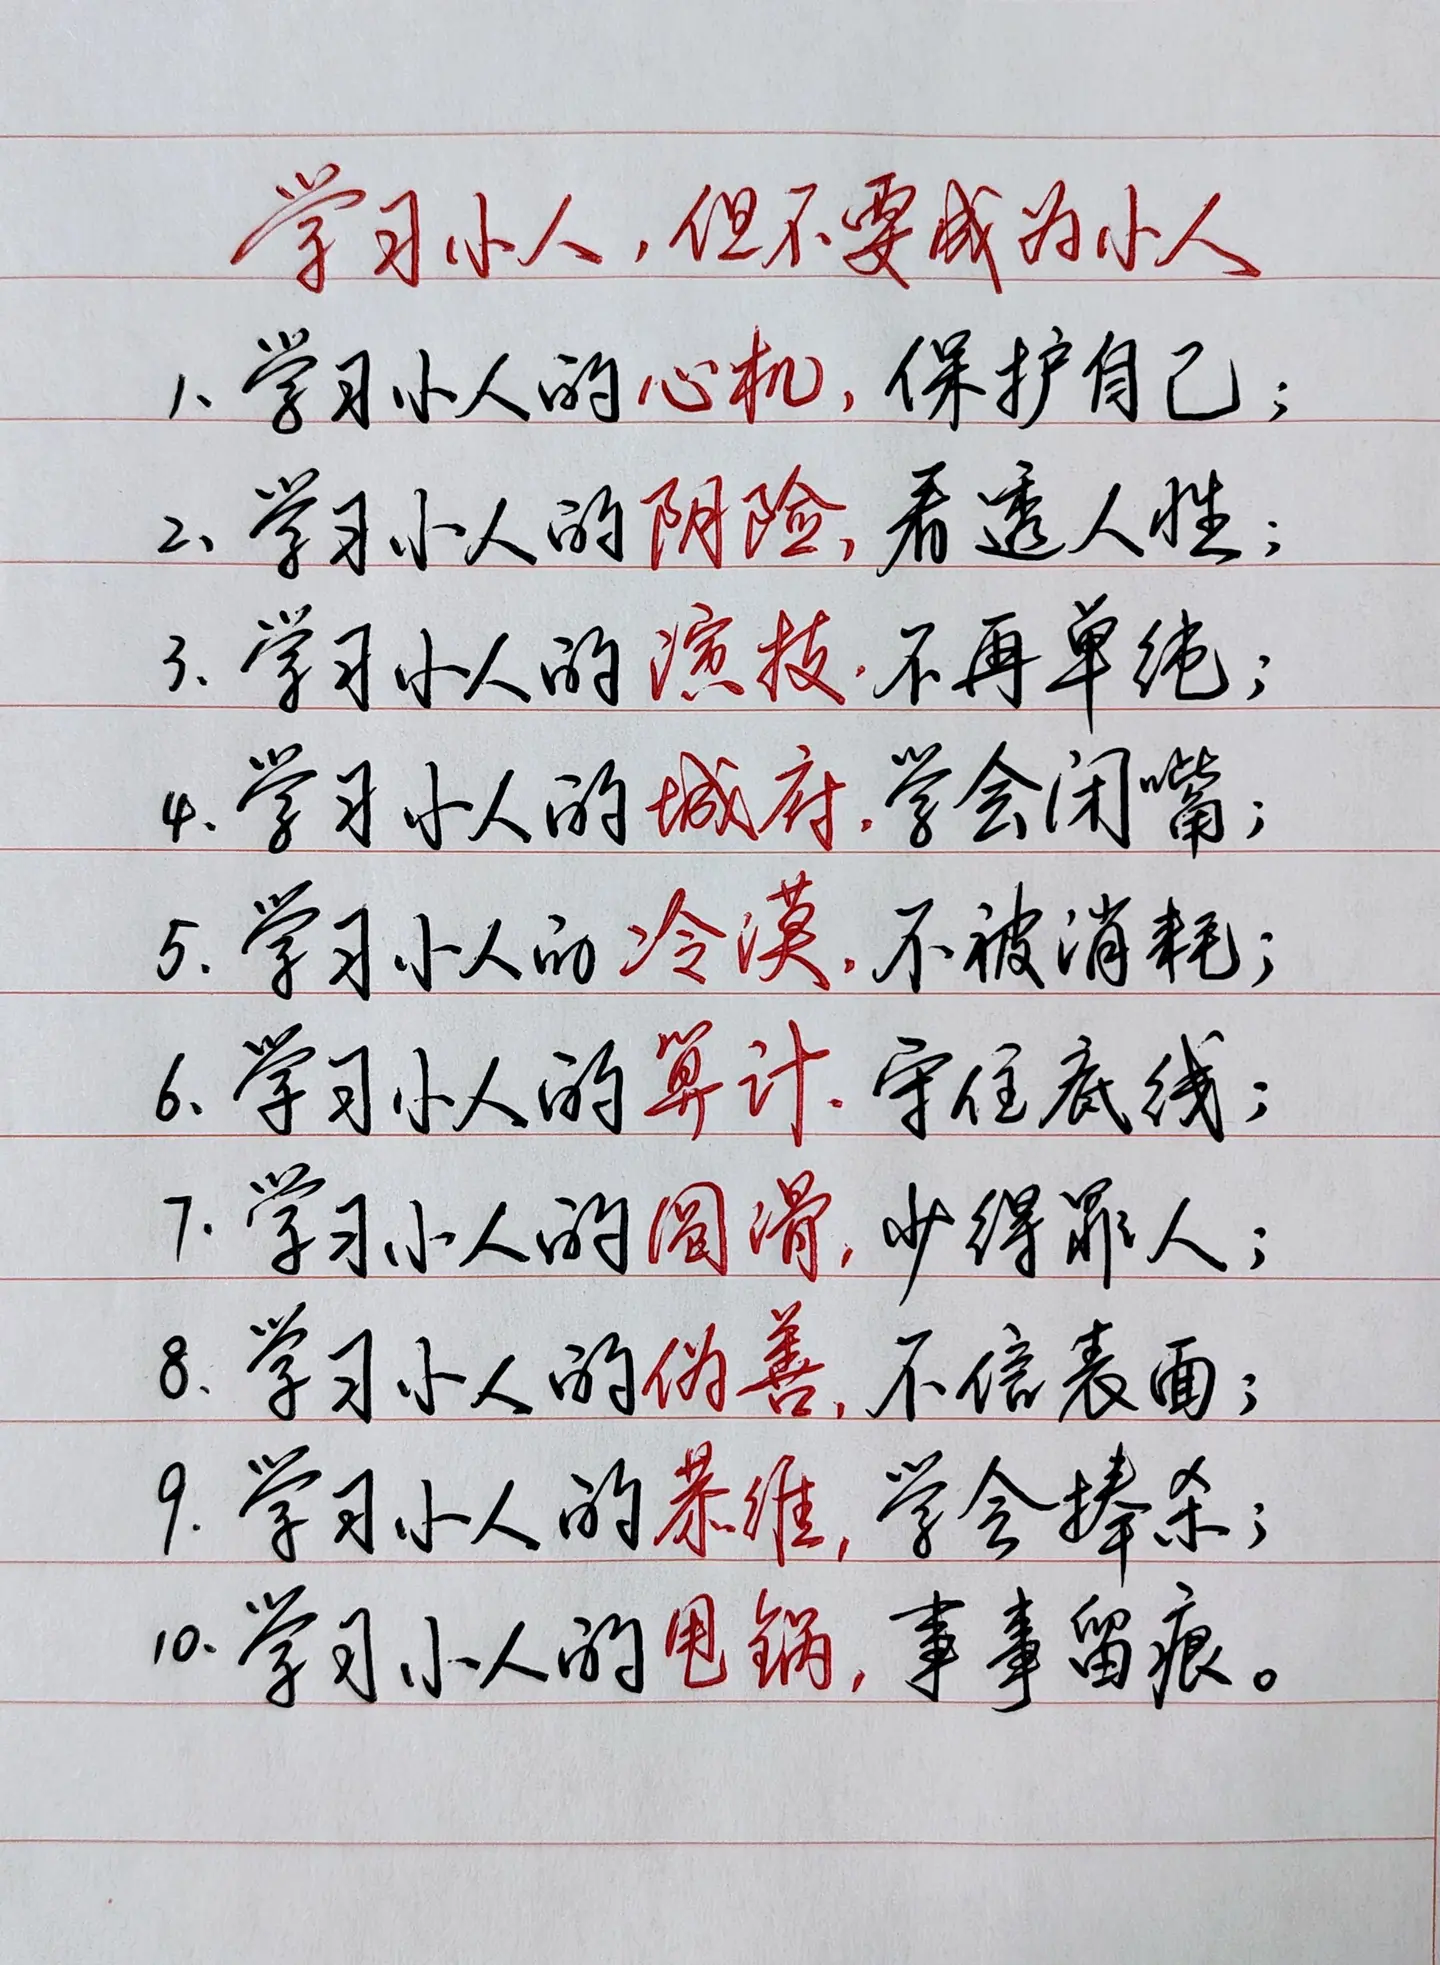 学习小人，但不要成为小人
1、学习小人的心机，保护自己；
2、学习小人的阴险，看透人性；
3、学习小人的演技，不再单纯；
4、学习小人的城府，学会闭嘴；
5、学习小人的冷漠，不被消耗；
6、学习小人的算计，守住底线；
7、学习小人的圆滑，少得罪人；
8、学习小人的伪善，不信表面；
9、学习小人的恭维，学会捧杀；
10、学习小人的甩锅，事事留痕。